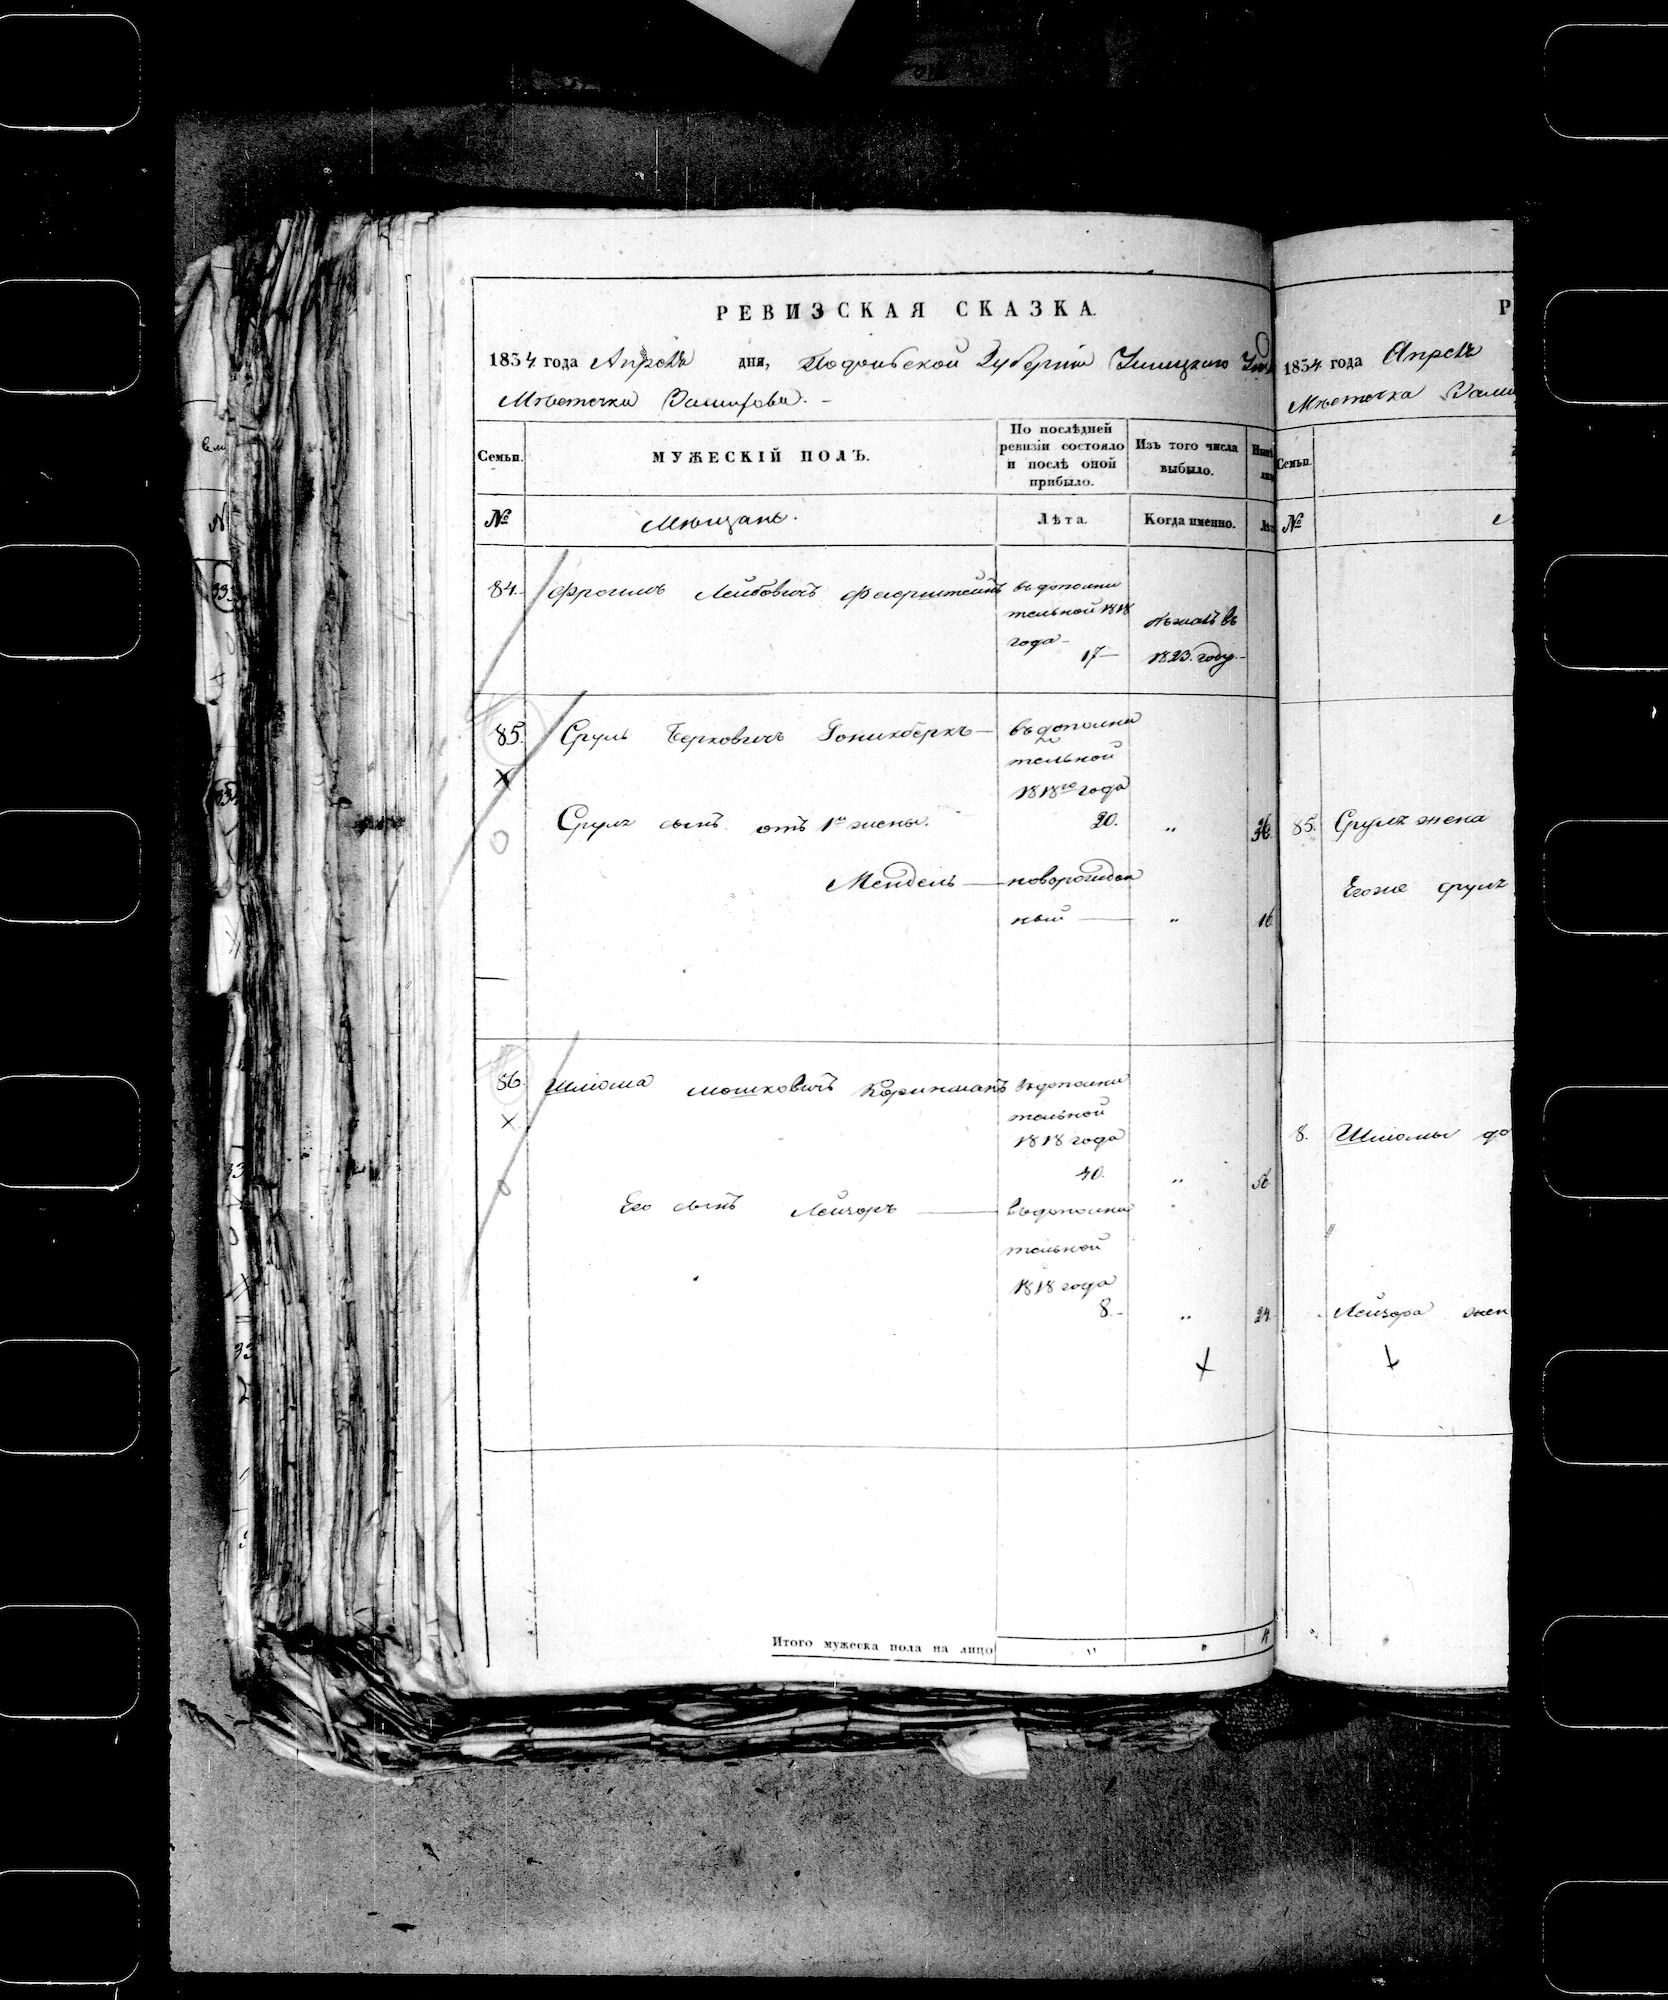 РЕВИЗСКАЯ СКАЗКА.
1834 года Апреля дня, Подольской Губернии Ушицкого
Мѣстечка
Семьи.
МУЖЕСКІЙ ПОЛЪ.
По послѣдней ревизіи состояло и послѣ оной прибыло.
Изъ того числа выбыло.
№
Мѣщане.
Лѣта.
Когда именно.
84. Фроимъ Лейбовичъ Фаерштейнъ въ дополни
тельной 1818
года
17
бѣжалъ въ
1823. году.
85. Сруль Берковичъ въ дополни
тельной
1818го года
Сруля сынъ отъ 1й жены. 20. " 36
Мендель новорожден
ный " 16
86. Шлиома Мошковичъ въ дополни
тельной
1818 года
40. " 56
Его сынъ Лейзоръ въ дополни
тельной
1818 года
8. " 24
Итого мужеска пола на лицо
1834 года Апреля
Мѣстечка
Семьи.
№
85. Сруля жена
Егоже Сруля
8. Шлиомы до
Лейзора жен